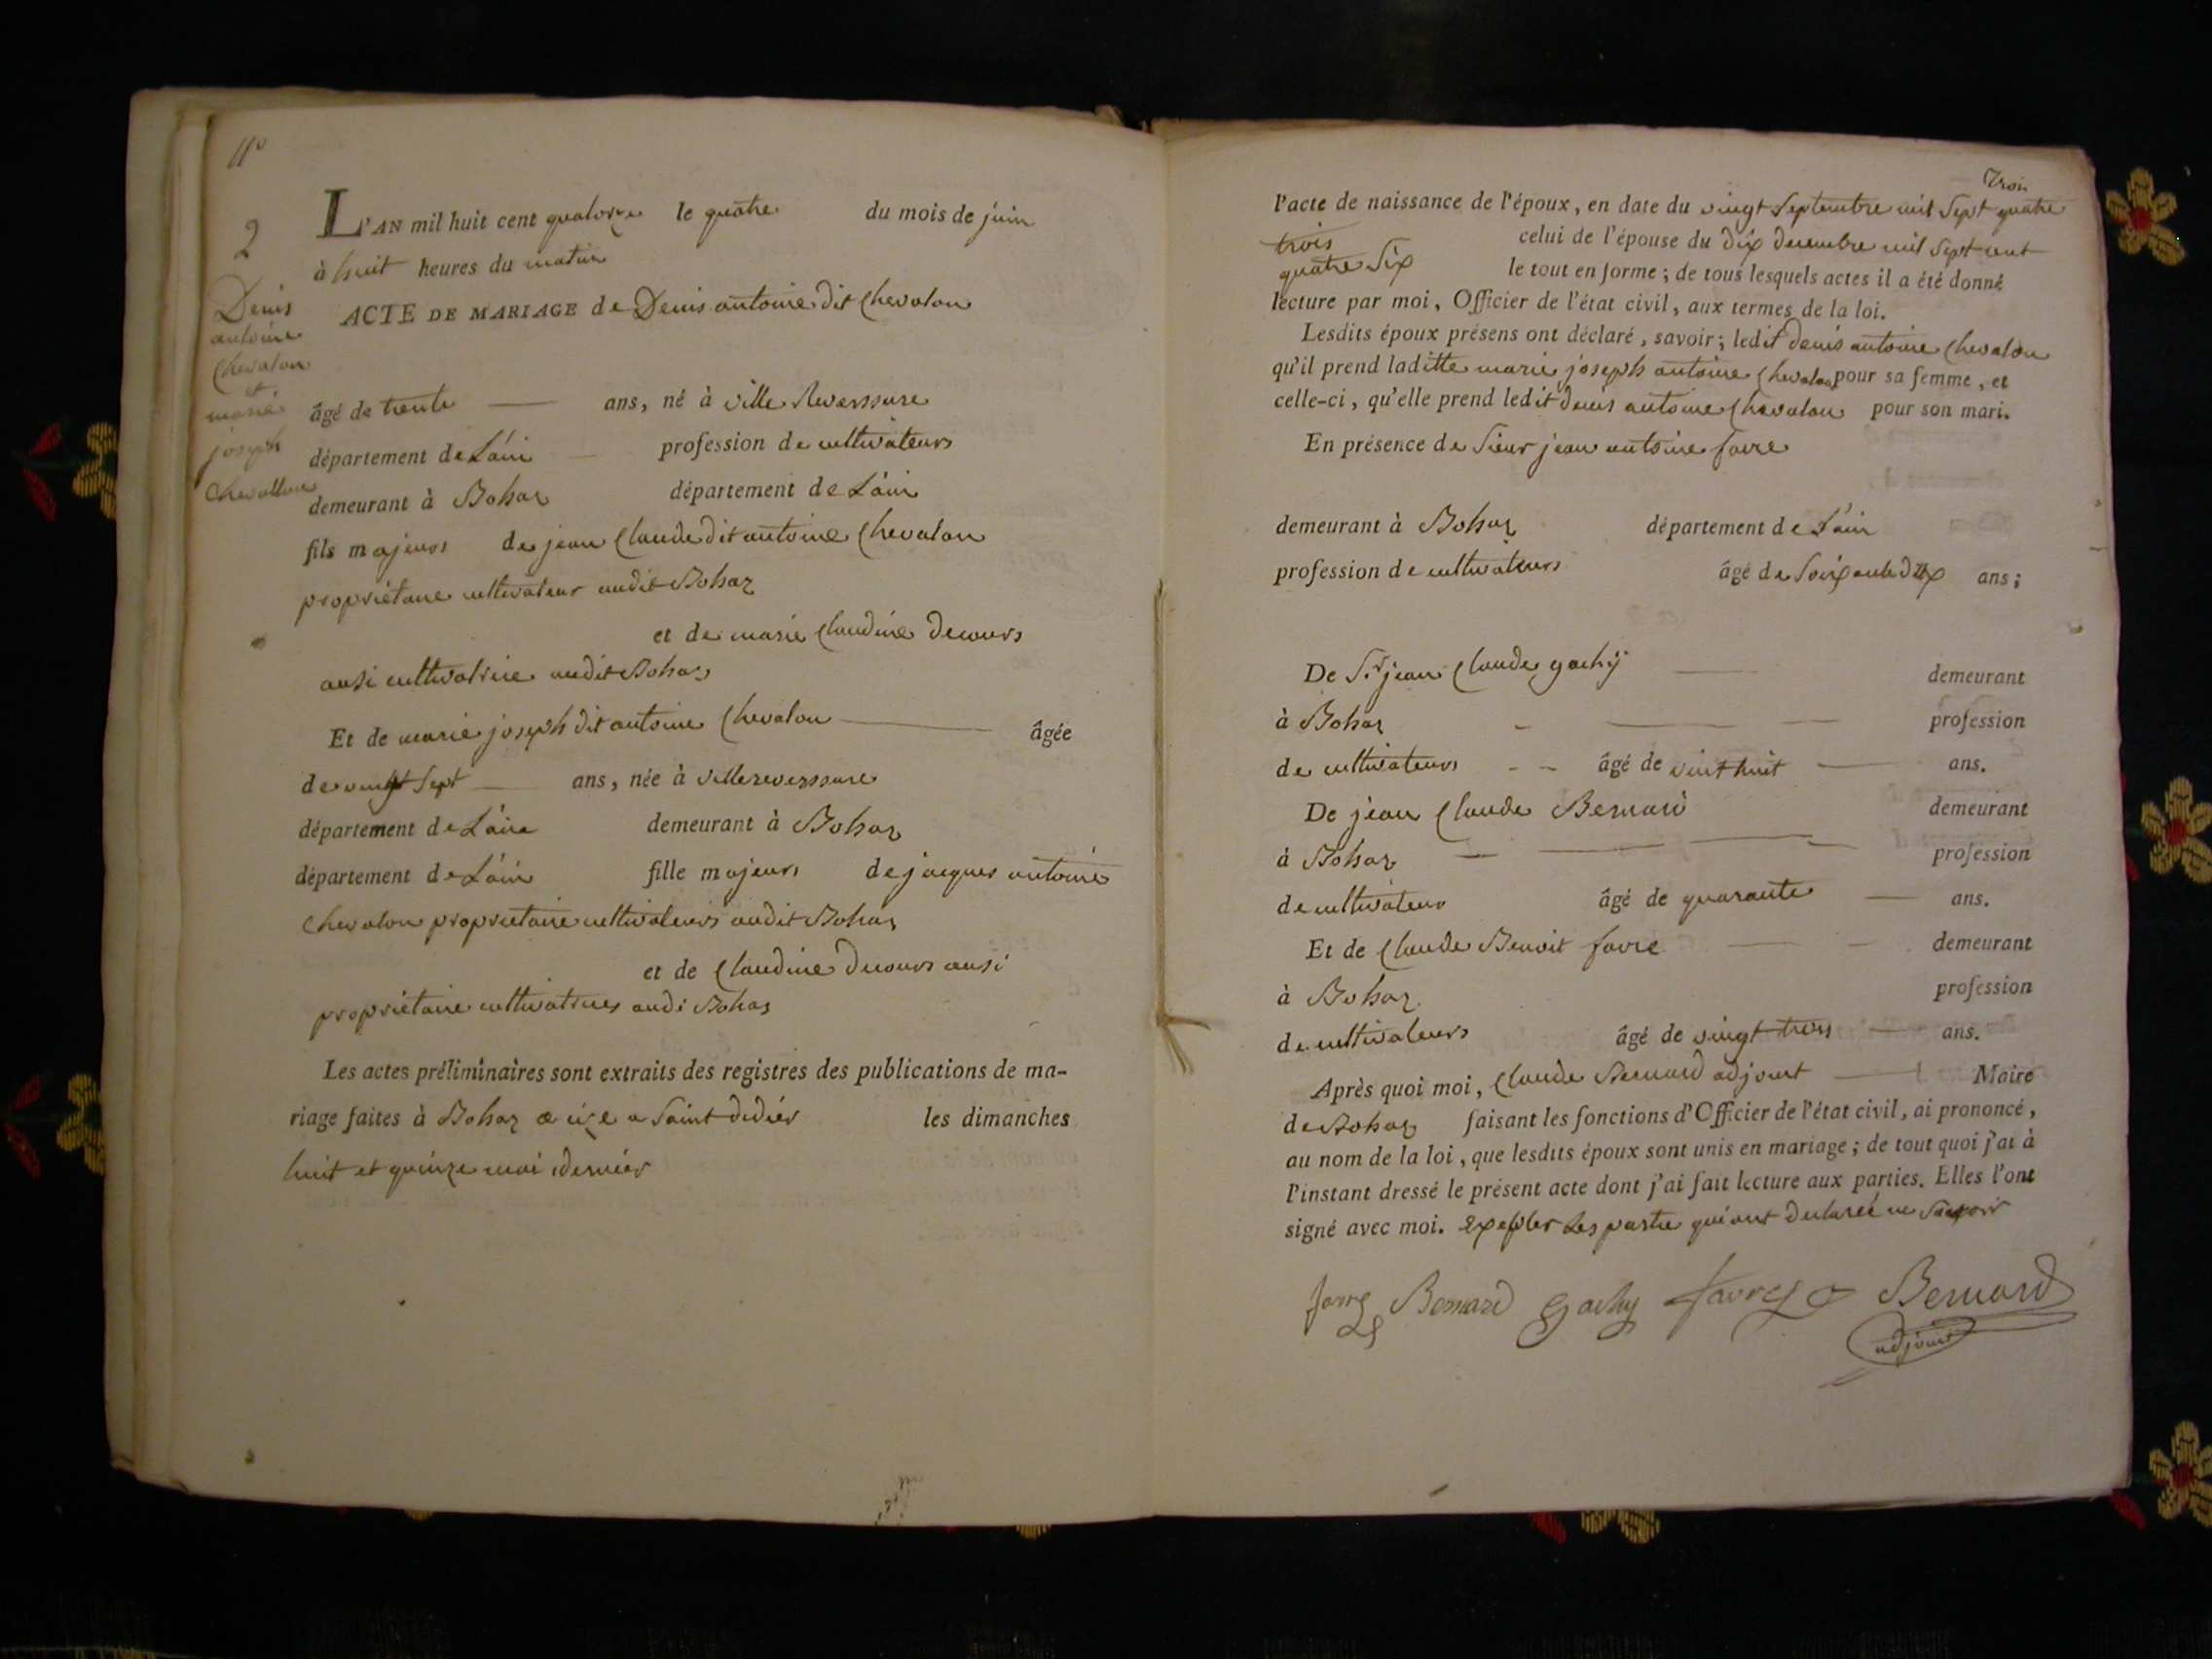 2
Denis
antoine
Chevalon
et
marie
joseph
Chevallon
L'AN mil huit cent quatorze le quatre du mois de juin
à huit heures du matin
ACTE DE MARIAGE de Denis antoine dit Chevalon
âgé de trente ans, né à ville Reverssure
département de L'ain profession de cultivateurs
demeurant à Bohaz département de L'ain
fils majeurs de jean Claude dit antoine Chevalon
propriétaire cultivateur audit Bohaz
et de marie Claudine Decours
ausi cultivatrice audit Bohaz
Et de marie joseph dit antoine Chevalon âgée
de vingt Sept ans, née à villereverssure
département de L'ain demeurant à Bohaz
département de L'ain fille majeurs de jacques antoine
Chevalon proprietaire cultivateurs audit Bohaz
et de Claudine Decours ausi
propriétaire cultivatrices audi Bohaz
Les actes préliminaires sont extraits des registres des publications de ma-
riage faites à Bohaz a Saint didiér les dimanches
huit et quinze mai derniér
Trois
l'acte de naissance de l'époux, en date du vingt Septembre mil Sept quatre
trois celui de l'épouse du dix decembre mil Sept cent
quatre Six le tout en forme ; de tous lesquels actes il a été donné
lecture par moi, Officier de l'état civil, aux termes de la loi.
Lesdits époux présens ont déclaré, savoir ; ledit denis antoine Chevalon
qu'il prend laditte marie joseph antoine Chevalon pour sa femme, et
celle-ci, qu'elle prend ledit denis antoine Chevalon pour son mari.
En présence de Sieur jean antoine favre
demeurant à Bohaz département de L'ain
profession de cultivateurs âgé de Soixante dix ans ;
De Sr jean Claude gachÿ demeurant
à Bohaz profession
de cultivateurs âgé de vint huit ans.
De jean Claude Bernard demeurant
à Bohaz profession
de cultivateur âgé de quarante ans.
Et de Claude Benoit favre demeurant
à Bohaz profession
de cultivateurs âgé de vingt trois ans.
Après quoi moi, Claude Bernard adjoint Maire
de Bohaz faisant les fonctions d'Officier de l'état civil, ai prononcé,
au nom de la loi, que lesdits époux sont unis en mariage ; de tout quoi j'ai à
l'instant dressé le présent acte dont j'ai fait lecture aux parties. Elles l'ont
signé avec moi. Les partie qui ont declareé ne Savoir
favre Bernard Gachy favre Bernard
adjoint